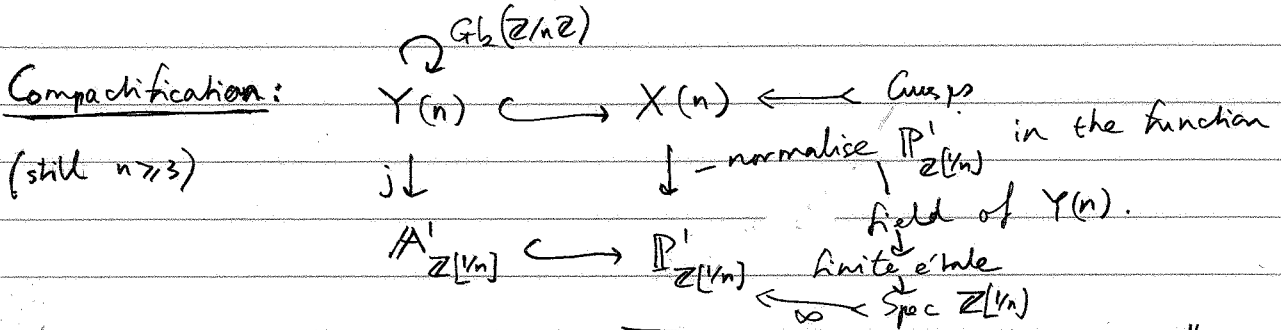 GL₂(ℤ/nℤ)
Compactification: Y(n) ↪ X(n) ← Cusps
(still n≥3) j↓ ↓ – normalise ℙ¹_{ℤ[1/n]} in the function
field of Y(n).
𝔸¹_{ℤ[1/n]} ↪ ℙ¹_{ℤ[1/n]} finite étale
∞ Spec ℤ[1/n]